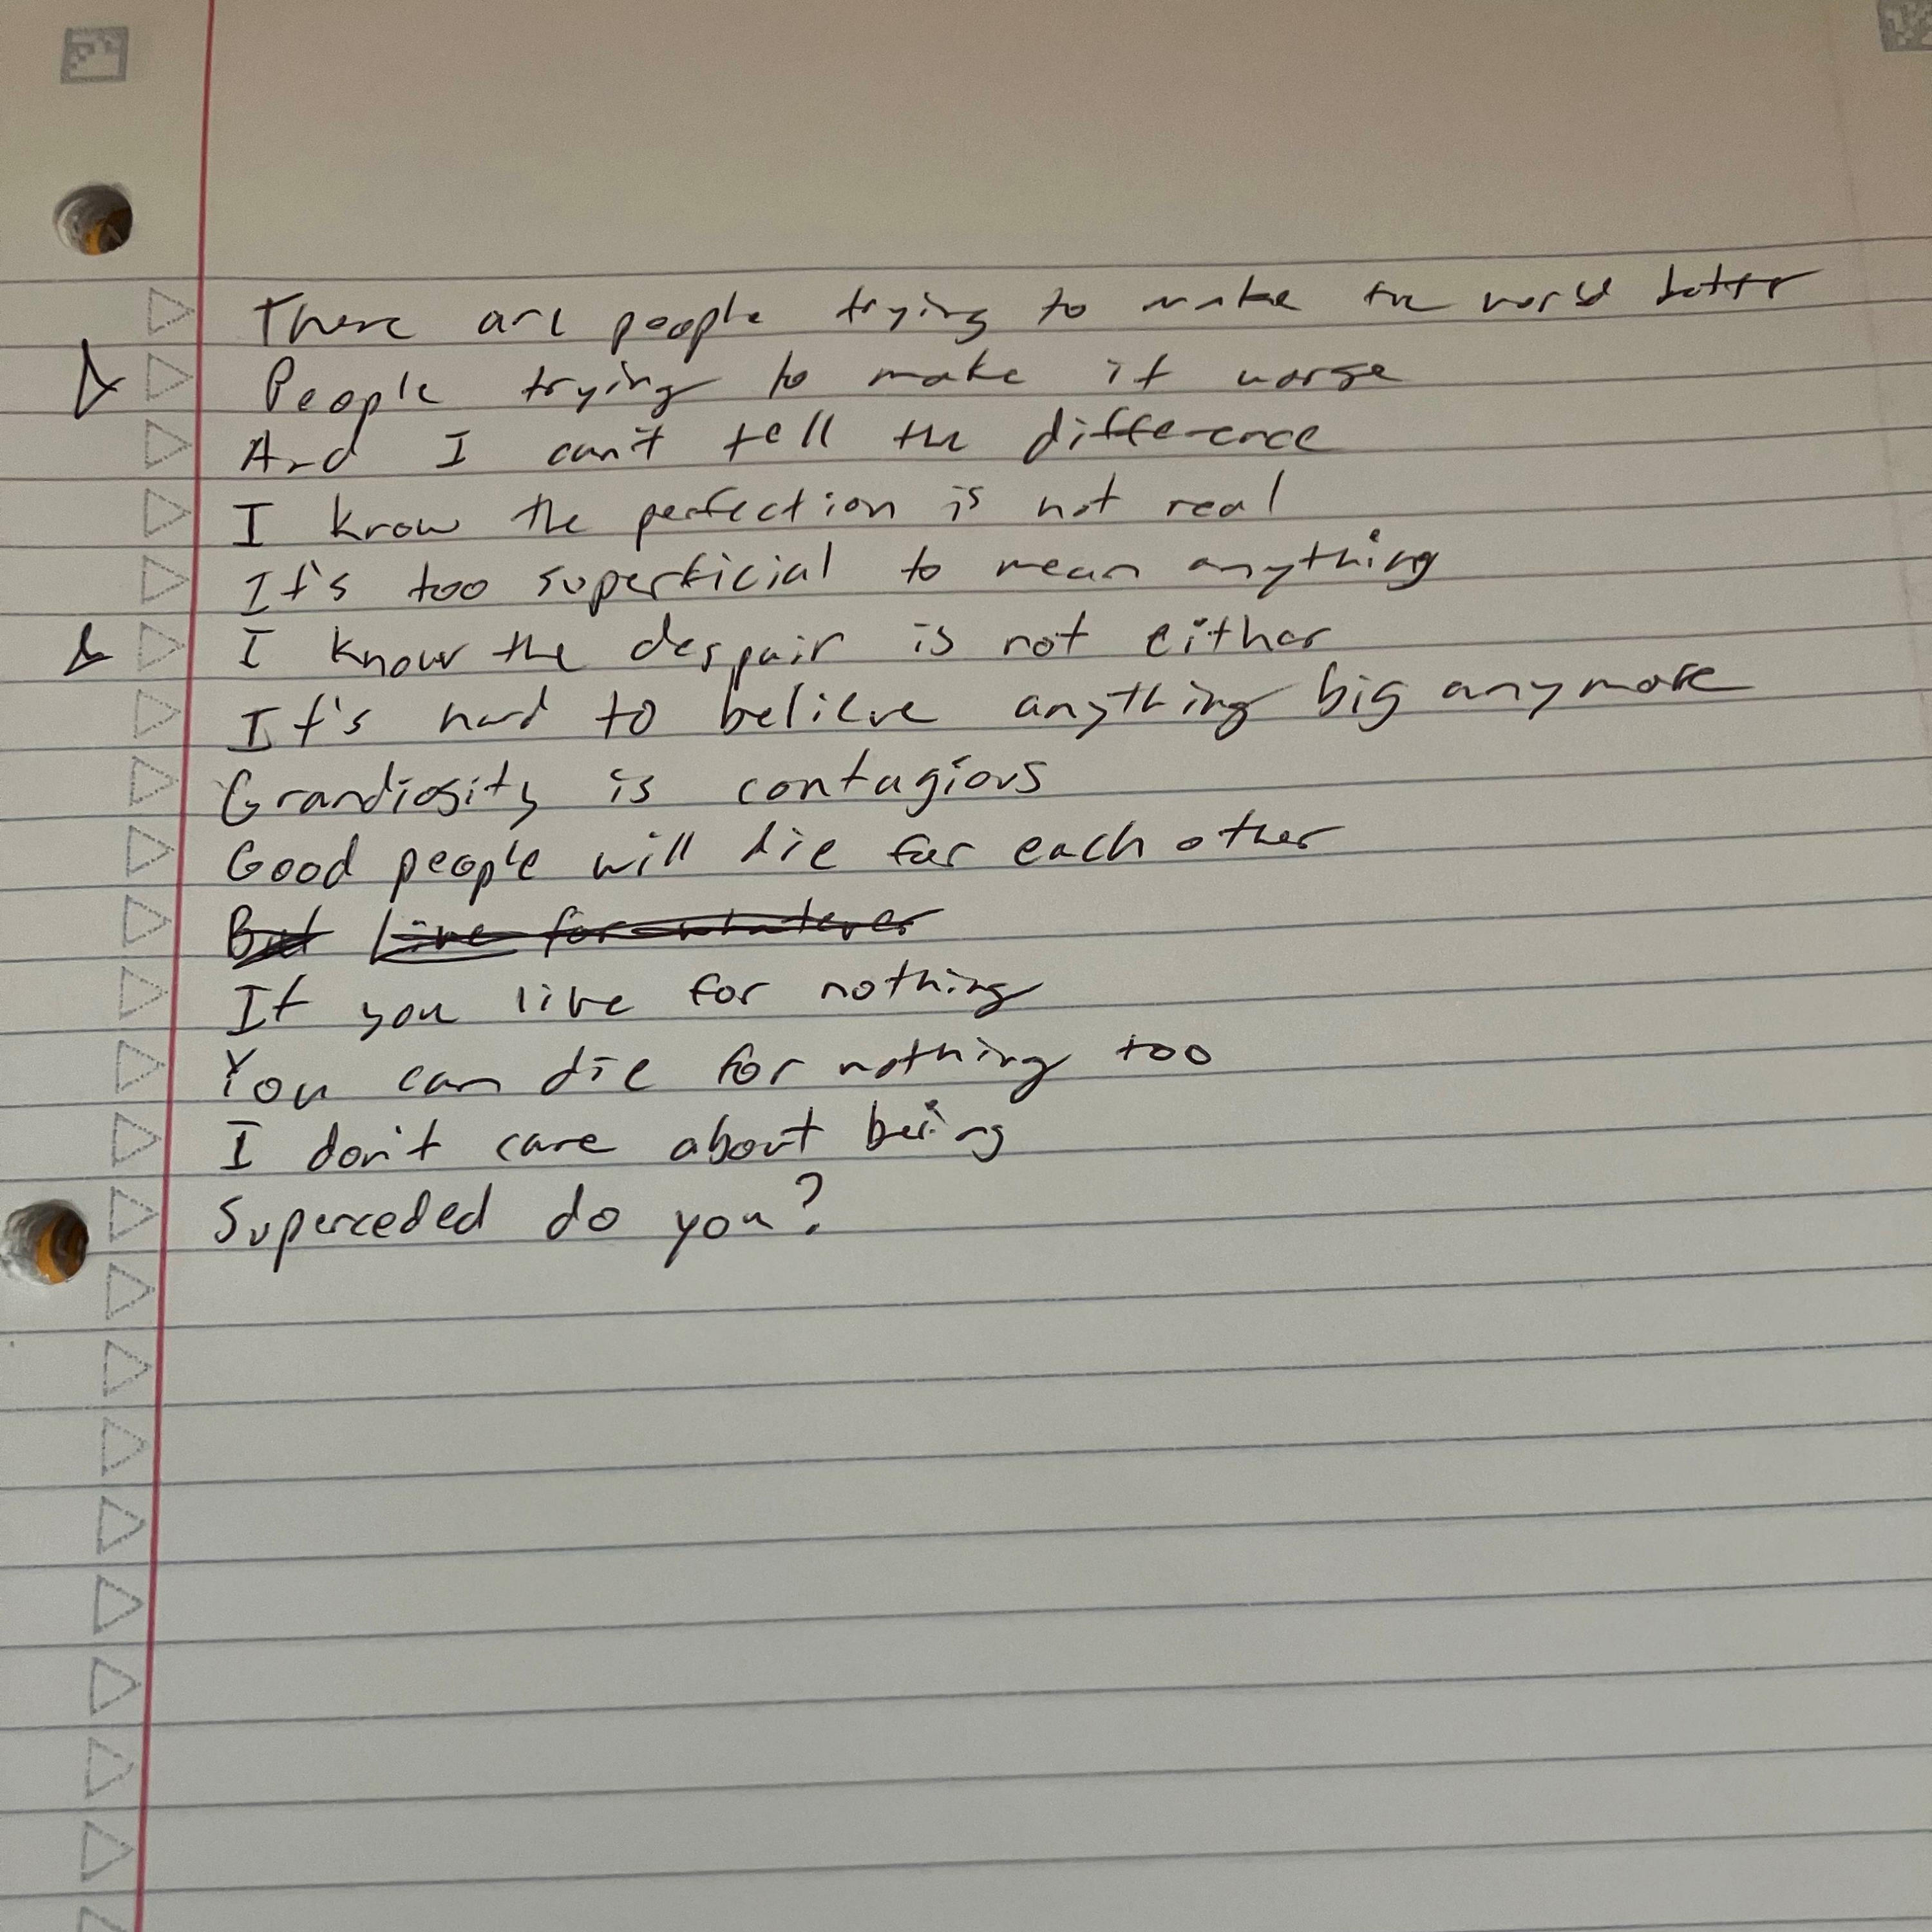 There are people trying to make the world better
People trying to make it worse
And I can't tell the difference
I know the perfection is not real
It's too superficial to mean anything
I know the despair is not either
It's hard to believe anything big anymore
Grandiosity is contagious
Good people will die for each other
But Live for whatever
If you live for nothing
You can die for nothing too
I don't care about being
Superceded do you?